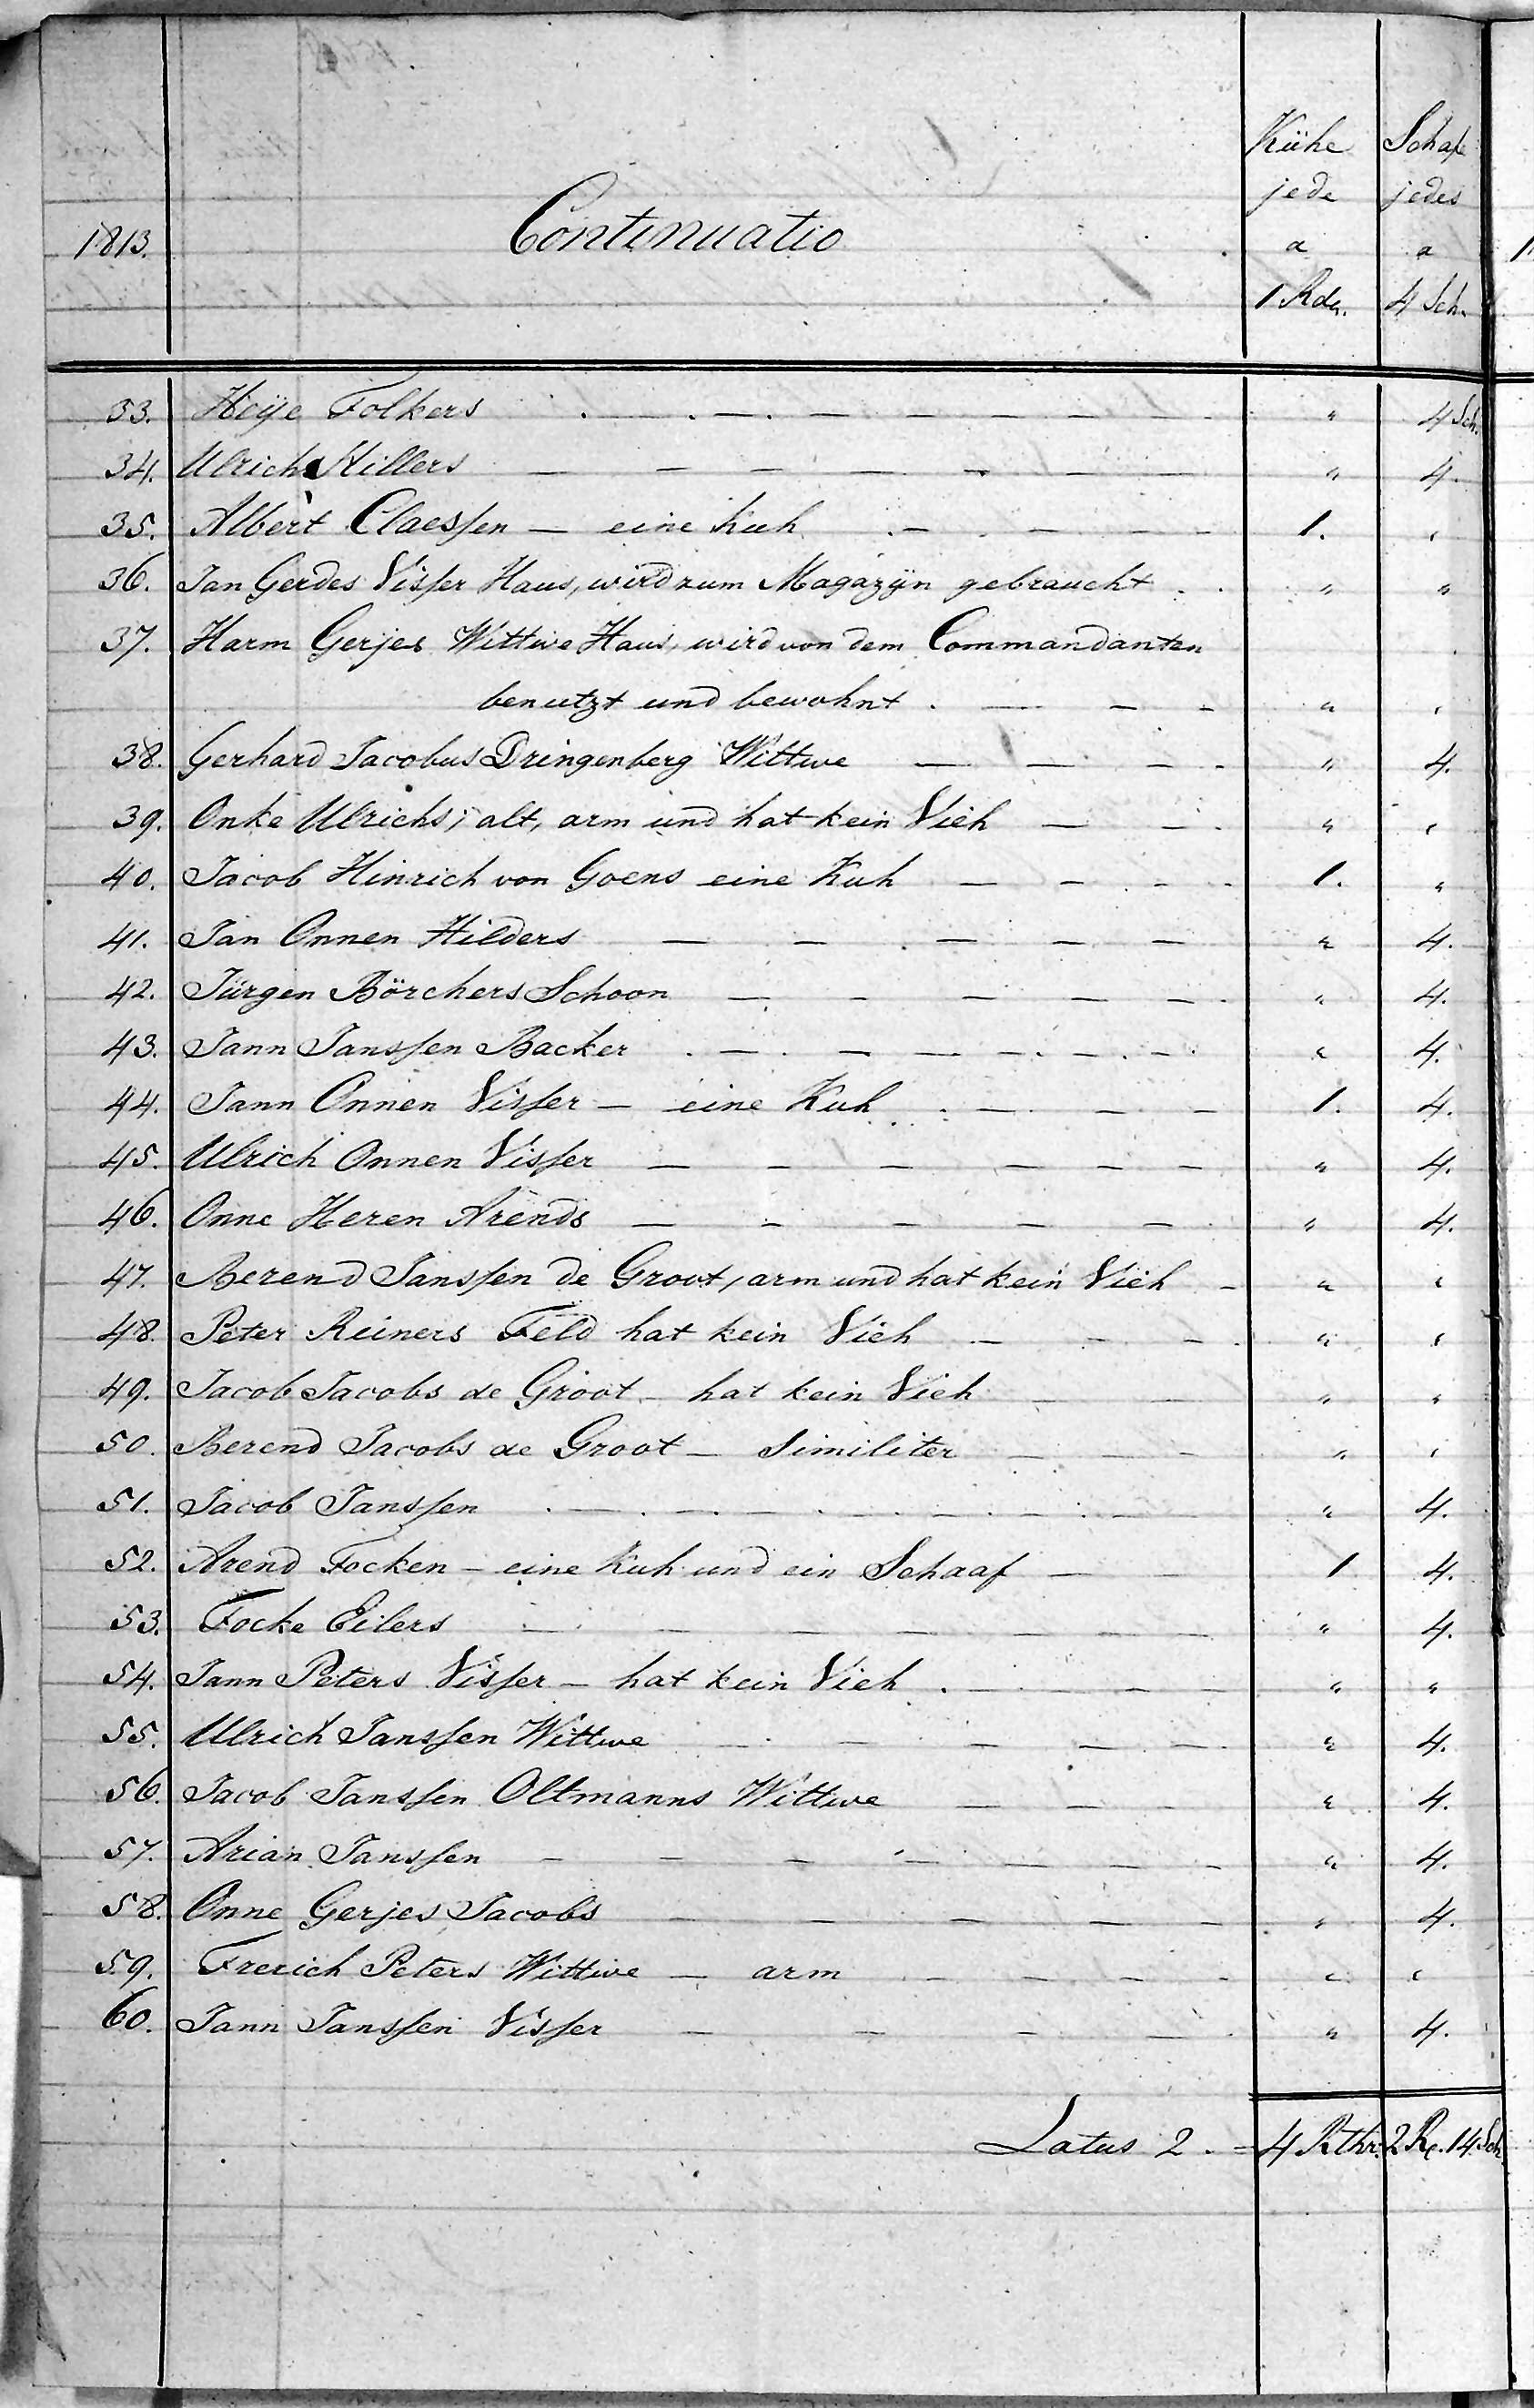 Kühe Schafe
jede jedes
1813. Continuatio a a
1 Rdr. 4 Sch.
33. Heÿe Folkers . — . — — — — — " 4 Sch.
34. Ulrich Hillers — — — — — — — " 4.
35. Albert Claessen — eine Kuh — — — — 1. "
36. Jan Gerdes Visser Haus, wird zum Magazÿn gebraucht . . " "
37. Harm Gerjes Wittwe Haus, wird von dem Commandanten
benutzt und bewohnt . — — — " "
38. Gerhard Jacobus Dringenberg Wittwe — — — — " 4.
39. Onke Ulrichs; alt, arm und hat kein Vieh — — " "
40. Jacob Hinrich von Goens eine Kuh — — — — 1. "
41. Jan Onnen Hilders — — — — — " 4.
42. Jürgen Börchers Schoon — — — — — " 4.
43. Jann Janssen Backer . — . — — — — — " 4.
44. Jann Onnen Visser — eine Kuh . — — — 1. 4.
45. Ulrich Onnen Visser — — — — — — " 4.
46. Onne Heren Arends — — — — — " 4.
47. Berend Janssen de Groot, arm und hat kein Vieh — " "
48. Peter Reiners Feld hat kein Vieh — — — " "
49. Jacob Jacobs de Groot — hat kein Vieh — — " "
50. Berend Jacobs de Groot — Similiter — — — " "
51. Jacob Janssen . — . — . — . — — — — " 4.
52. Arend Focken — eine Kuh und ein Schaaf — — 1 4.
53. Focke Eilers — — — — — — — " 4.
54. Jann Peters Visser — hat kein Vieh . — — — — " "
55. Ulrich Janssen Wittwe — — — — — " 4.
56. Jacob Janssen Oltmanns Wittwe — — — " 4.
57. Arian Janssen — — — — — — — " 4.
58. Onne Gerjes Jacobs — — — — — " 4.
59. Frerich Peters Wittwe — arm — — — — " "
60. Jann Janssen Visser — — — — " 4.
Latus 2. = 4 Rthr. 2 R. 14 Sch.